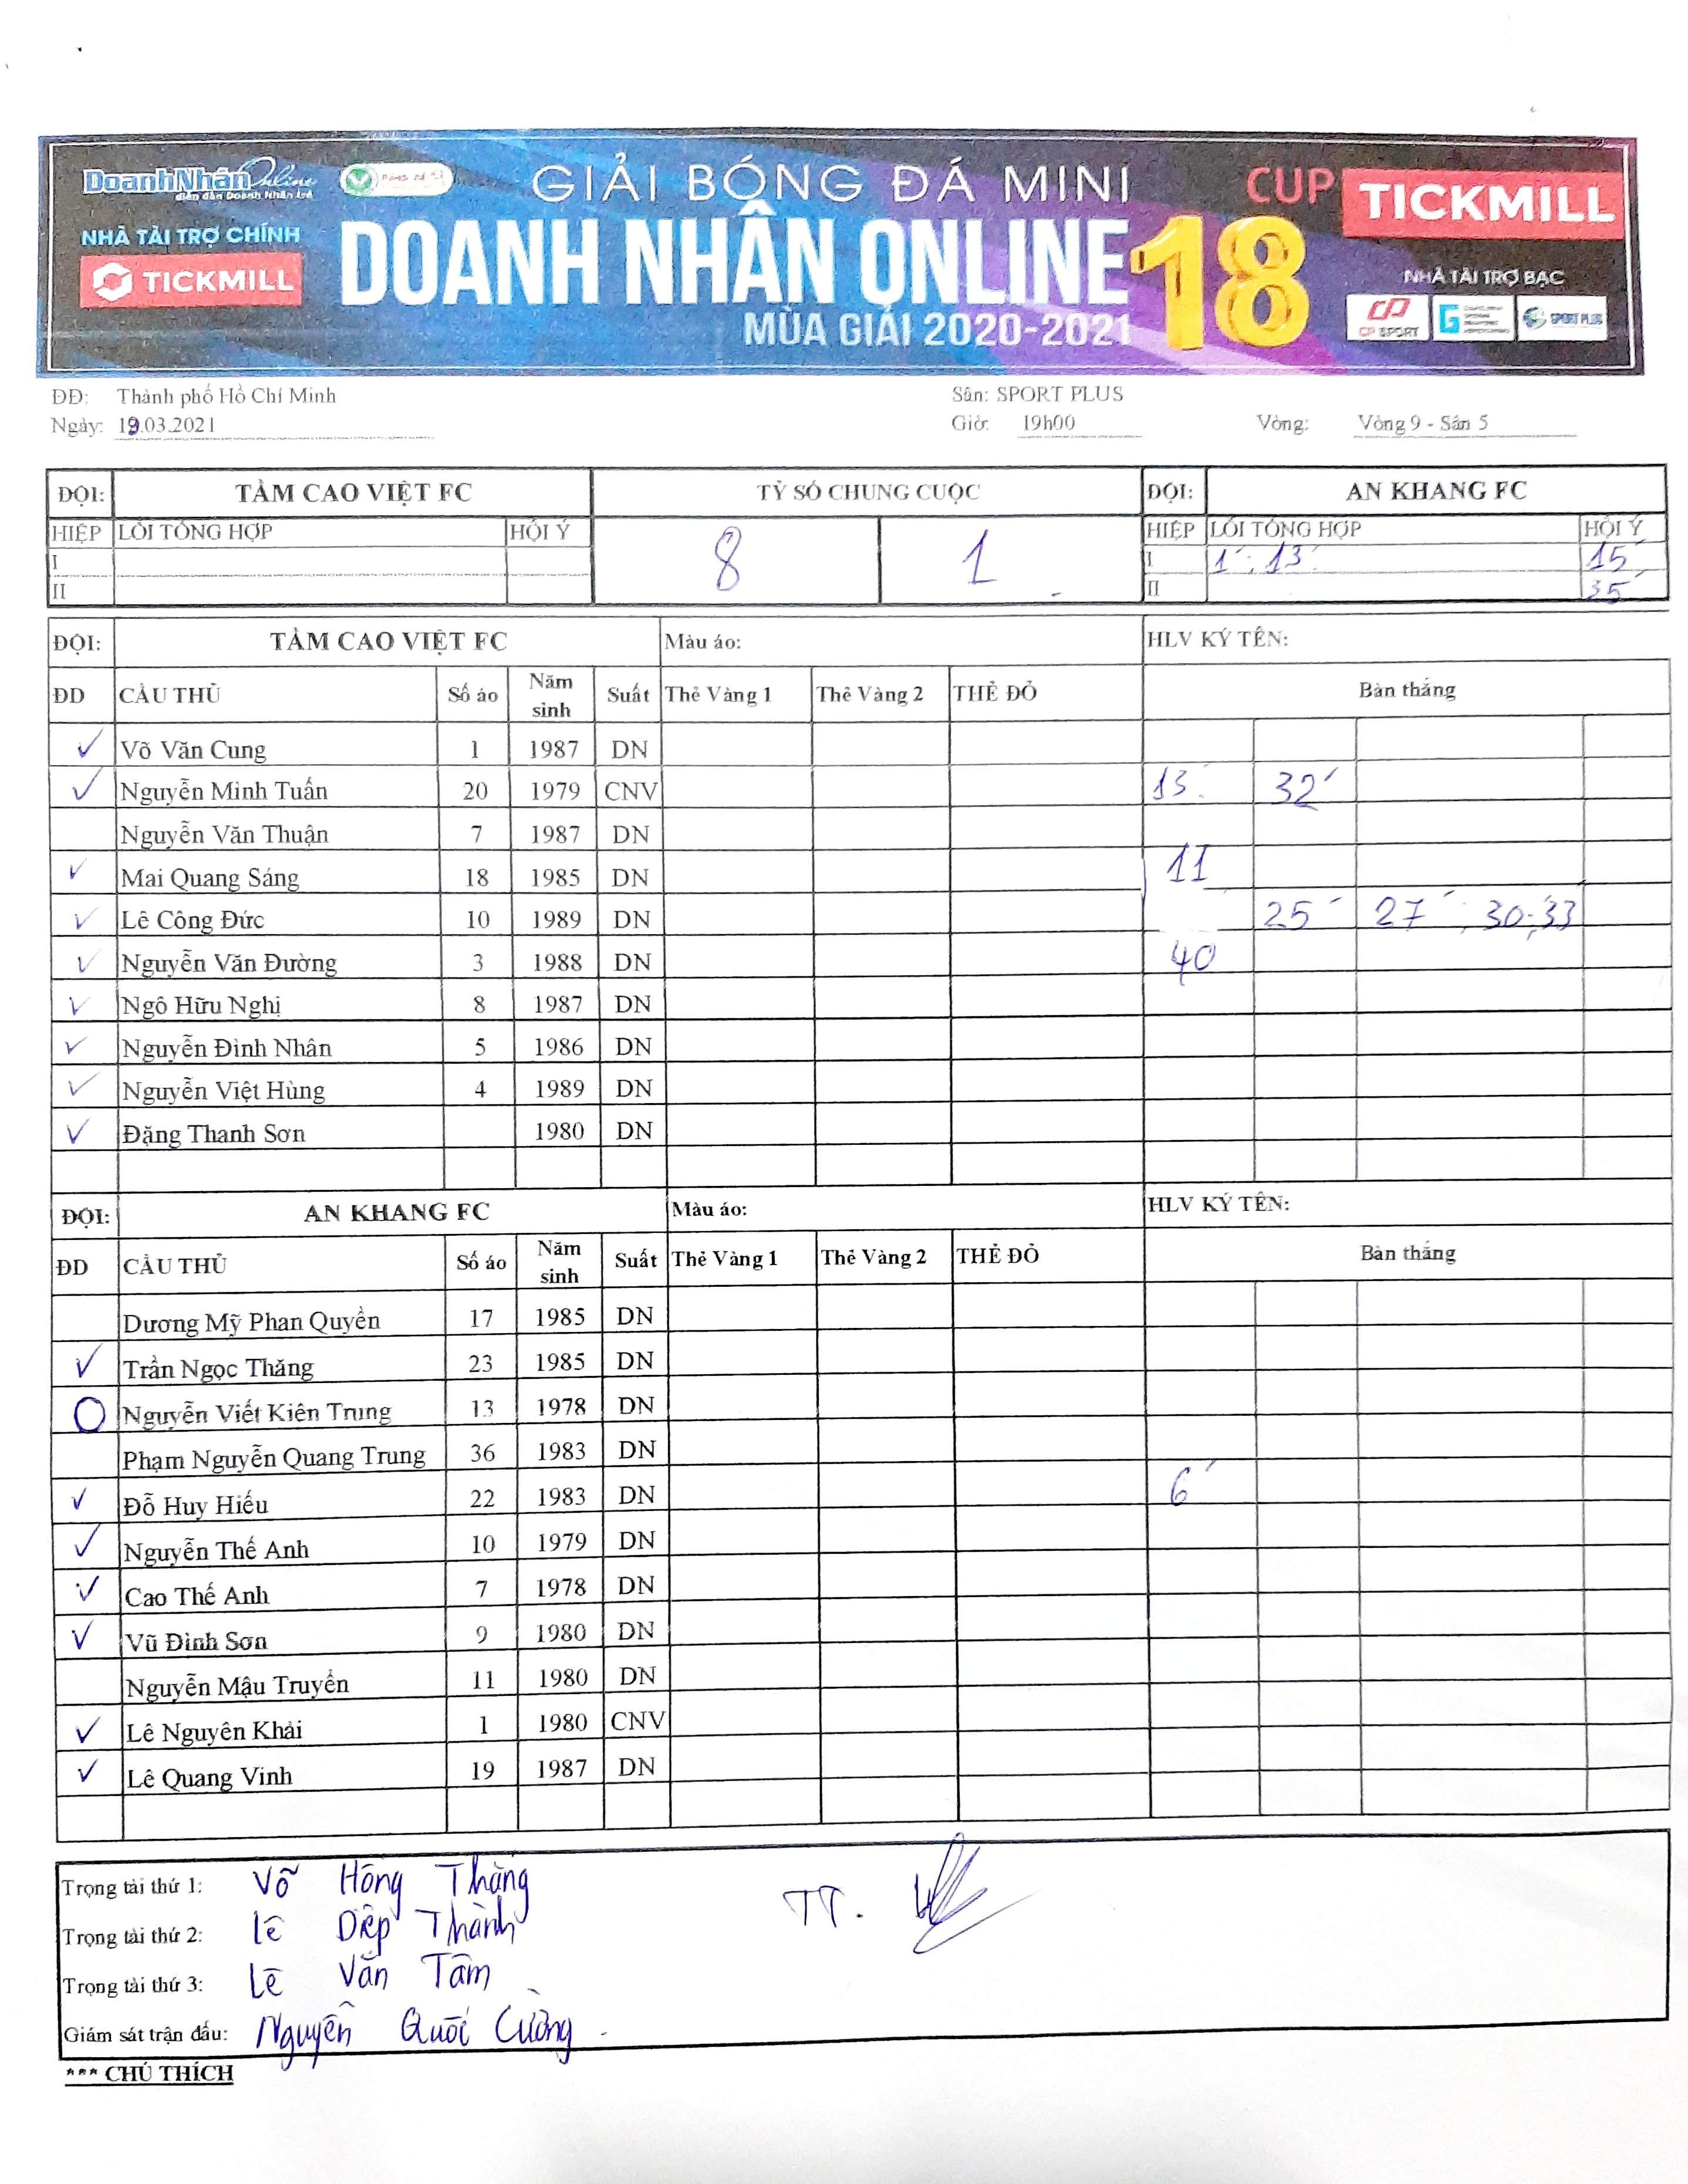 DoanhNhânOnline
diễn đàn Doanh Nhân trẻ
GIẢI BÓNG ĐÁ MINI
CUP TICKMILL
NHÀ TÀI TRỢ CHÍNH
TICKMILL
DOANH NHÂN ONLINE 18
MÙA GIẢI 2020-2021
NHÀ TÀI TRỢ BẠC
CP SPORT
SPORT PLUS
ĐĐ: Thành phố Hồ Chí Minh Sân: SPORT PLUS
Ngày: 19.03.2021 Giờ: 19h00 Vòng: Vòng 9 - Sân 5
ĐỘI: TẦM CAO VIỆT FC TỶ SỐ CHUNG CUỘC ĐỘI: AN KHANG FC
HIỆP LỖI TỔNG HỢP HỘI Ý 8 1 HIỆP LỖI TỔNG HỢP HỘI Ý
I I 1' ; 13' 15'
II II 35'
ĐỘI: TẦM CAO VIỆT FC Màu áo: HLV KÝ TÊN:
ĐD CẦU THỦ Số áo Năm sinh Suất Thẻ Vàng 1 Thẻ Vàng 2 THẺ ĐỎ Bàn thắng
✓ Võ Văn Cung 1 1987 DN
✓ Nguyễn Minh Tuấn 20 1979 CNV 13' 32'
Nguyễn Văn Thuận 7 1987 DN
✓ Mai Quang Sáng 18 1985 DN 11
✓ Lê Công Đức 10 1989 DN 25' 27' ; 30; 33
✓ Nguyễn Văn Đường 3 1988 DN 40
✓ Ngô Hữu Nghị 8 1987 DN
✓ Nguyễn Đình Nhân 5 1986 DN
✓ Nguyễn Việt Hùng 4 1989 DN
✓ Đặng Thanh Sơn 1980 DN
ĐỘI: AN KHANG FC Màu áo: HLV KÝ TÊN:
ĐD CẦU THỦ Số áo Năm sinh Suất Thẻ Vàng 1 Thẻ Vàng 2 THẺ ĐỎ Bàn thắng
Dương Mỹ Phan Quyền 17 1985 DN
✓ Trần Ngọc Thăng 23 1985 DN
O Nguyễn Viết Kiên Trung 13 1978 DN
Phạm Nguyễn Quang Trung 36 1983 DN
✓ Đỗ Huy Hiếu 22 1983 DN 6'
✓ Nguyễn Thế Anh 10 1979 DN
✓ Cao Thế Anh 7 1978 DN
✓ Vũ Đình Sơn 9 1980 DN
Nguyễn Mậu Truyền 11 1980 DN
✓ Lê Nguyên Khải 1 1980 CNV
✓ Lê Quang Vinh 19 1987 DN
Trọng tài thứ 1: Võ Hồng Thăng TT.
Trọng tài thứ 2: Lê Diệp Thành
Trọng tài thứ 3: Lê Văn Tâm
Giám sát trận đấu: Nguyễn Quốc Cường
*** CHÚ THÍCH